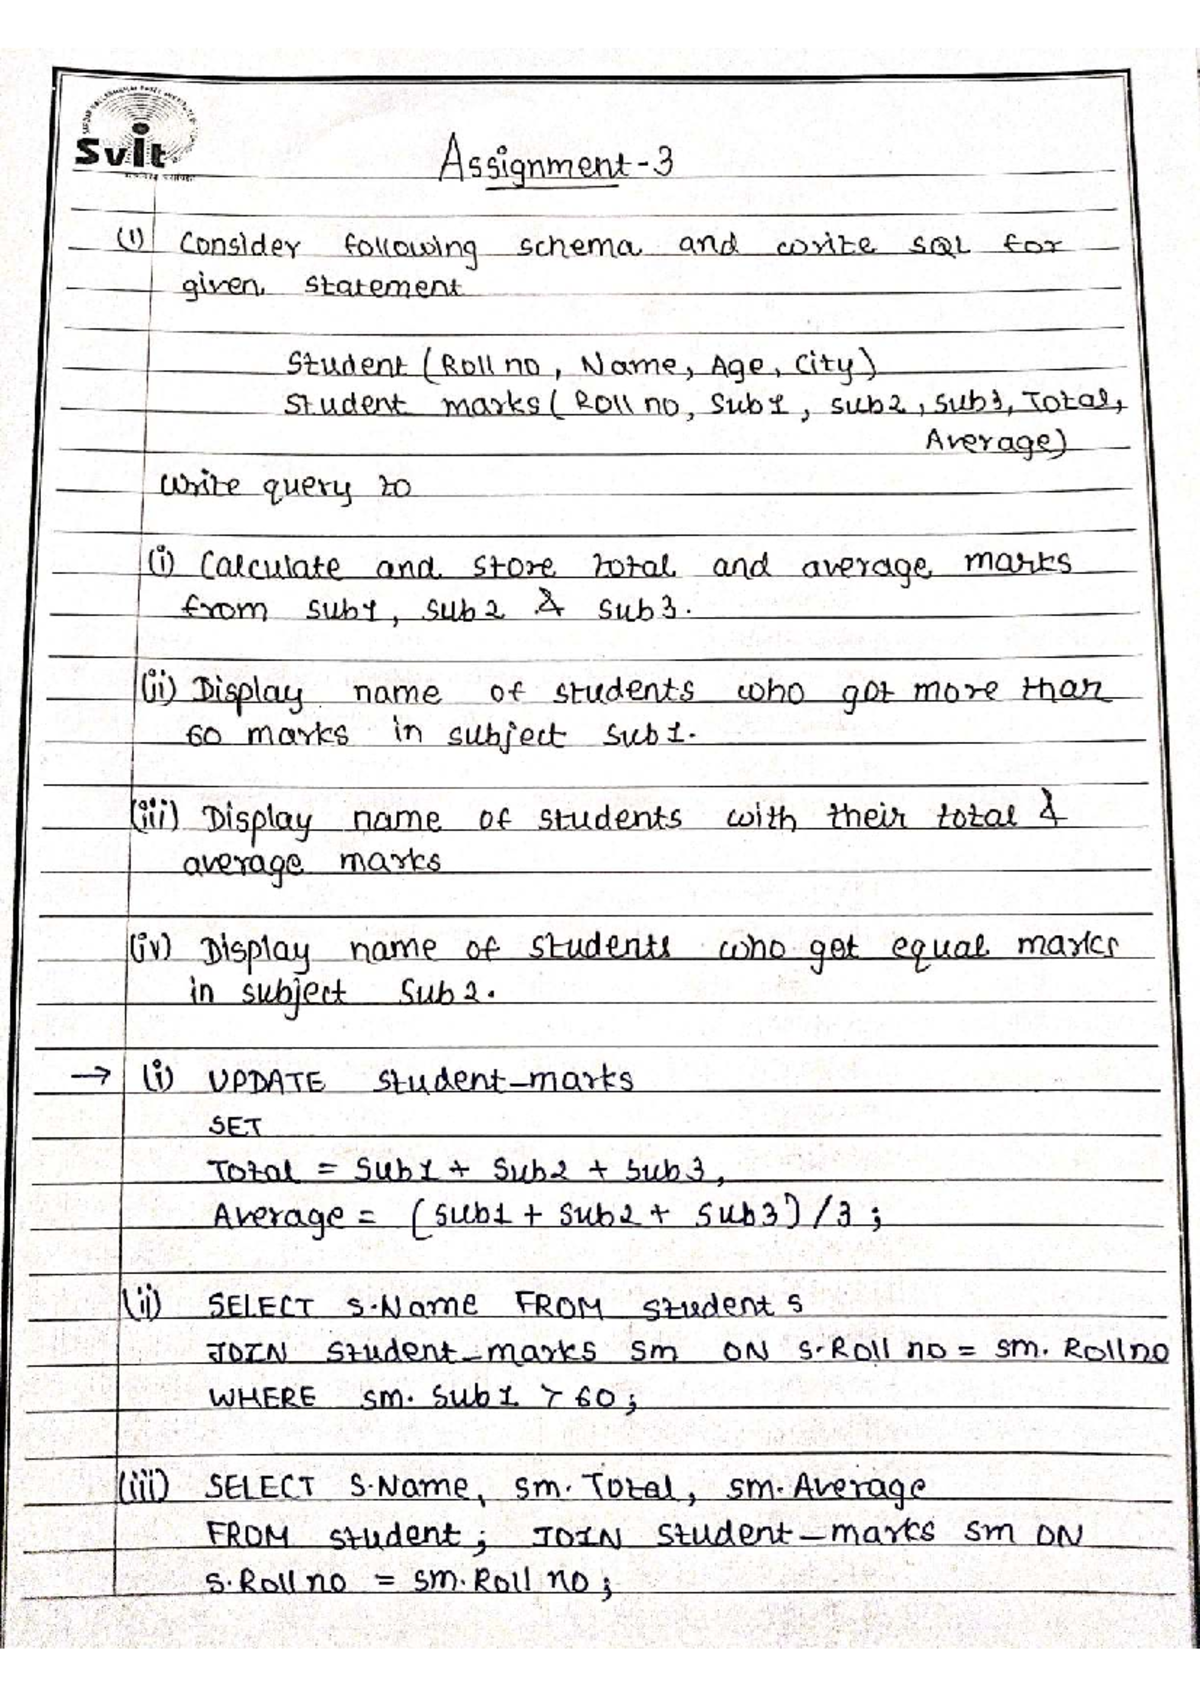 Svit
Assignment-3
(1) Consider following schema and write SQL for
given statement
Student (Roll no, Name, Age, City)
Student marks (Roll no, Sub1, sub2, sub3, Total,
Average)
Write query to
(i) Calculate and store total and average marks
from sub1, sub2 & sub3.
(ii) Display name of students who got more than
60 marks in subject sub1.
(iii) Display name of students with their total &
average marks
(iv) Display name of students who get equal marks
in subject Sub2.
→ (i) UPDATE student-marks
SET
Total = Sub1 + Sub2 + Sub3,
Average = (sub1 + sub2 + sub3) /3;
(ii) SELECT s.Name FROM student s
JOIN student-marks sm ON s.Roll no = sm.Roll no
WHERE sm.sub1 > 60;
(iii) SELECT s.Name, sm.Total, sm.Average
FROM student; JOIN student-marks sm ON
s.Roll no = sm.Roll no;